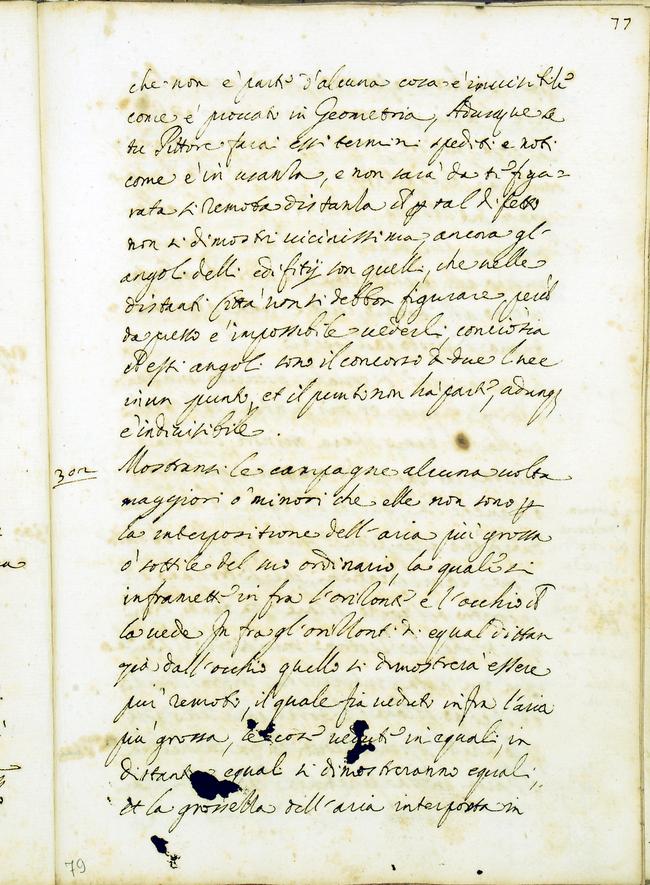 77
che non è parte d'alcuna cosa è invisibile
come è provato in Geometria, Adunque se
tu Pittore farai essi termini spediti e noti
come è in usanza, e non sarà da te figu=
rata si remota distanza che per tal difetto
non si dimostri vicinissima, ancora gl'
angoli delli edifitij son quelli, che nelle
distanti Città non si debbon figurare, però
da presso è impossibile vederli, conciosia
che essi angoli sono il concorso di due linee
in un punto, et il punto non ha parte, adunq
è indivisibile.
302 Mostransi le campagne alcuna volta
maggiori ò minori che elle non sono per
la interpositione dell'aria più grossa
ò sottile del suo ordinario, la quale si
inframette infra l'orizonte e l'occhio che
la vede. In fra gl'orizzonti di equal distan
zia dall'occhio quello si dimostrerà essere
più remoto, il quale fia veduto infra l'aria
più grossa, le cose vedute inequali, in
distante equali si dimostreranno equali,
et la grossezza dell'aria interposta in
79